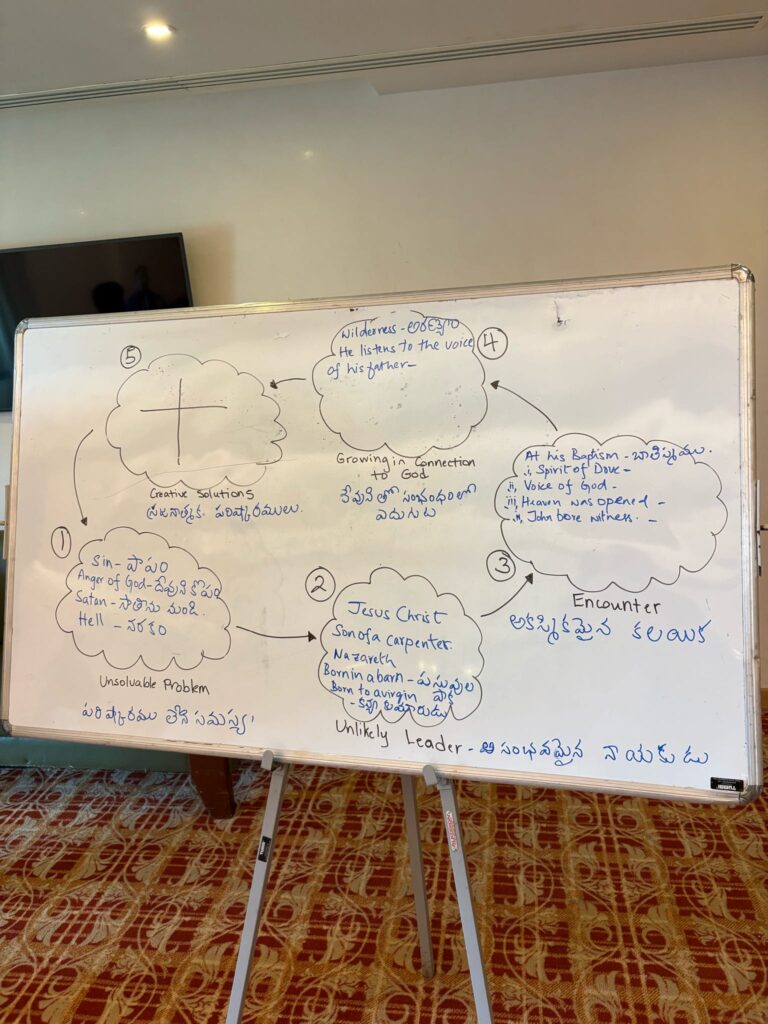 ①
Sin - పాపం
Anger of God - దేవుని కోపం
Satan - సాతాను నుండి.
Hell - నరకం
Unsoluable Problem
పరిష్కారము లేని సమస్య
②
Jesus Christ
Son of a carpenter.
Nazareth
Born in a barn - పశువుల
Born to a virgin పాక
- కన్యా కుమారుడు
Unlikely Leader - అసంభవమైన నాయకుడు
③
At his Baptism - బాప్తిస్మము.
i, Spirit of Dove -
ii, Voice of God -
iii, Heaven was opened -
iv, John bore witness. -
Encounter
అకస్మికమైన కలయిక
④
Wilderness - అరణ్యం
He listens to the voice
of his father -
Growing in Connection
to God
దేవుని తో సంభంధంలో
ఎదుగుట
⑤
Creative Solutions
పరిష్కారములు.